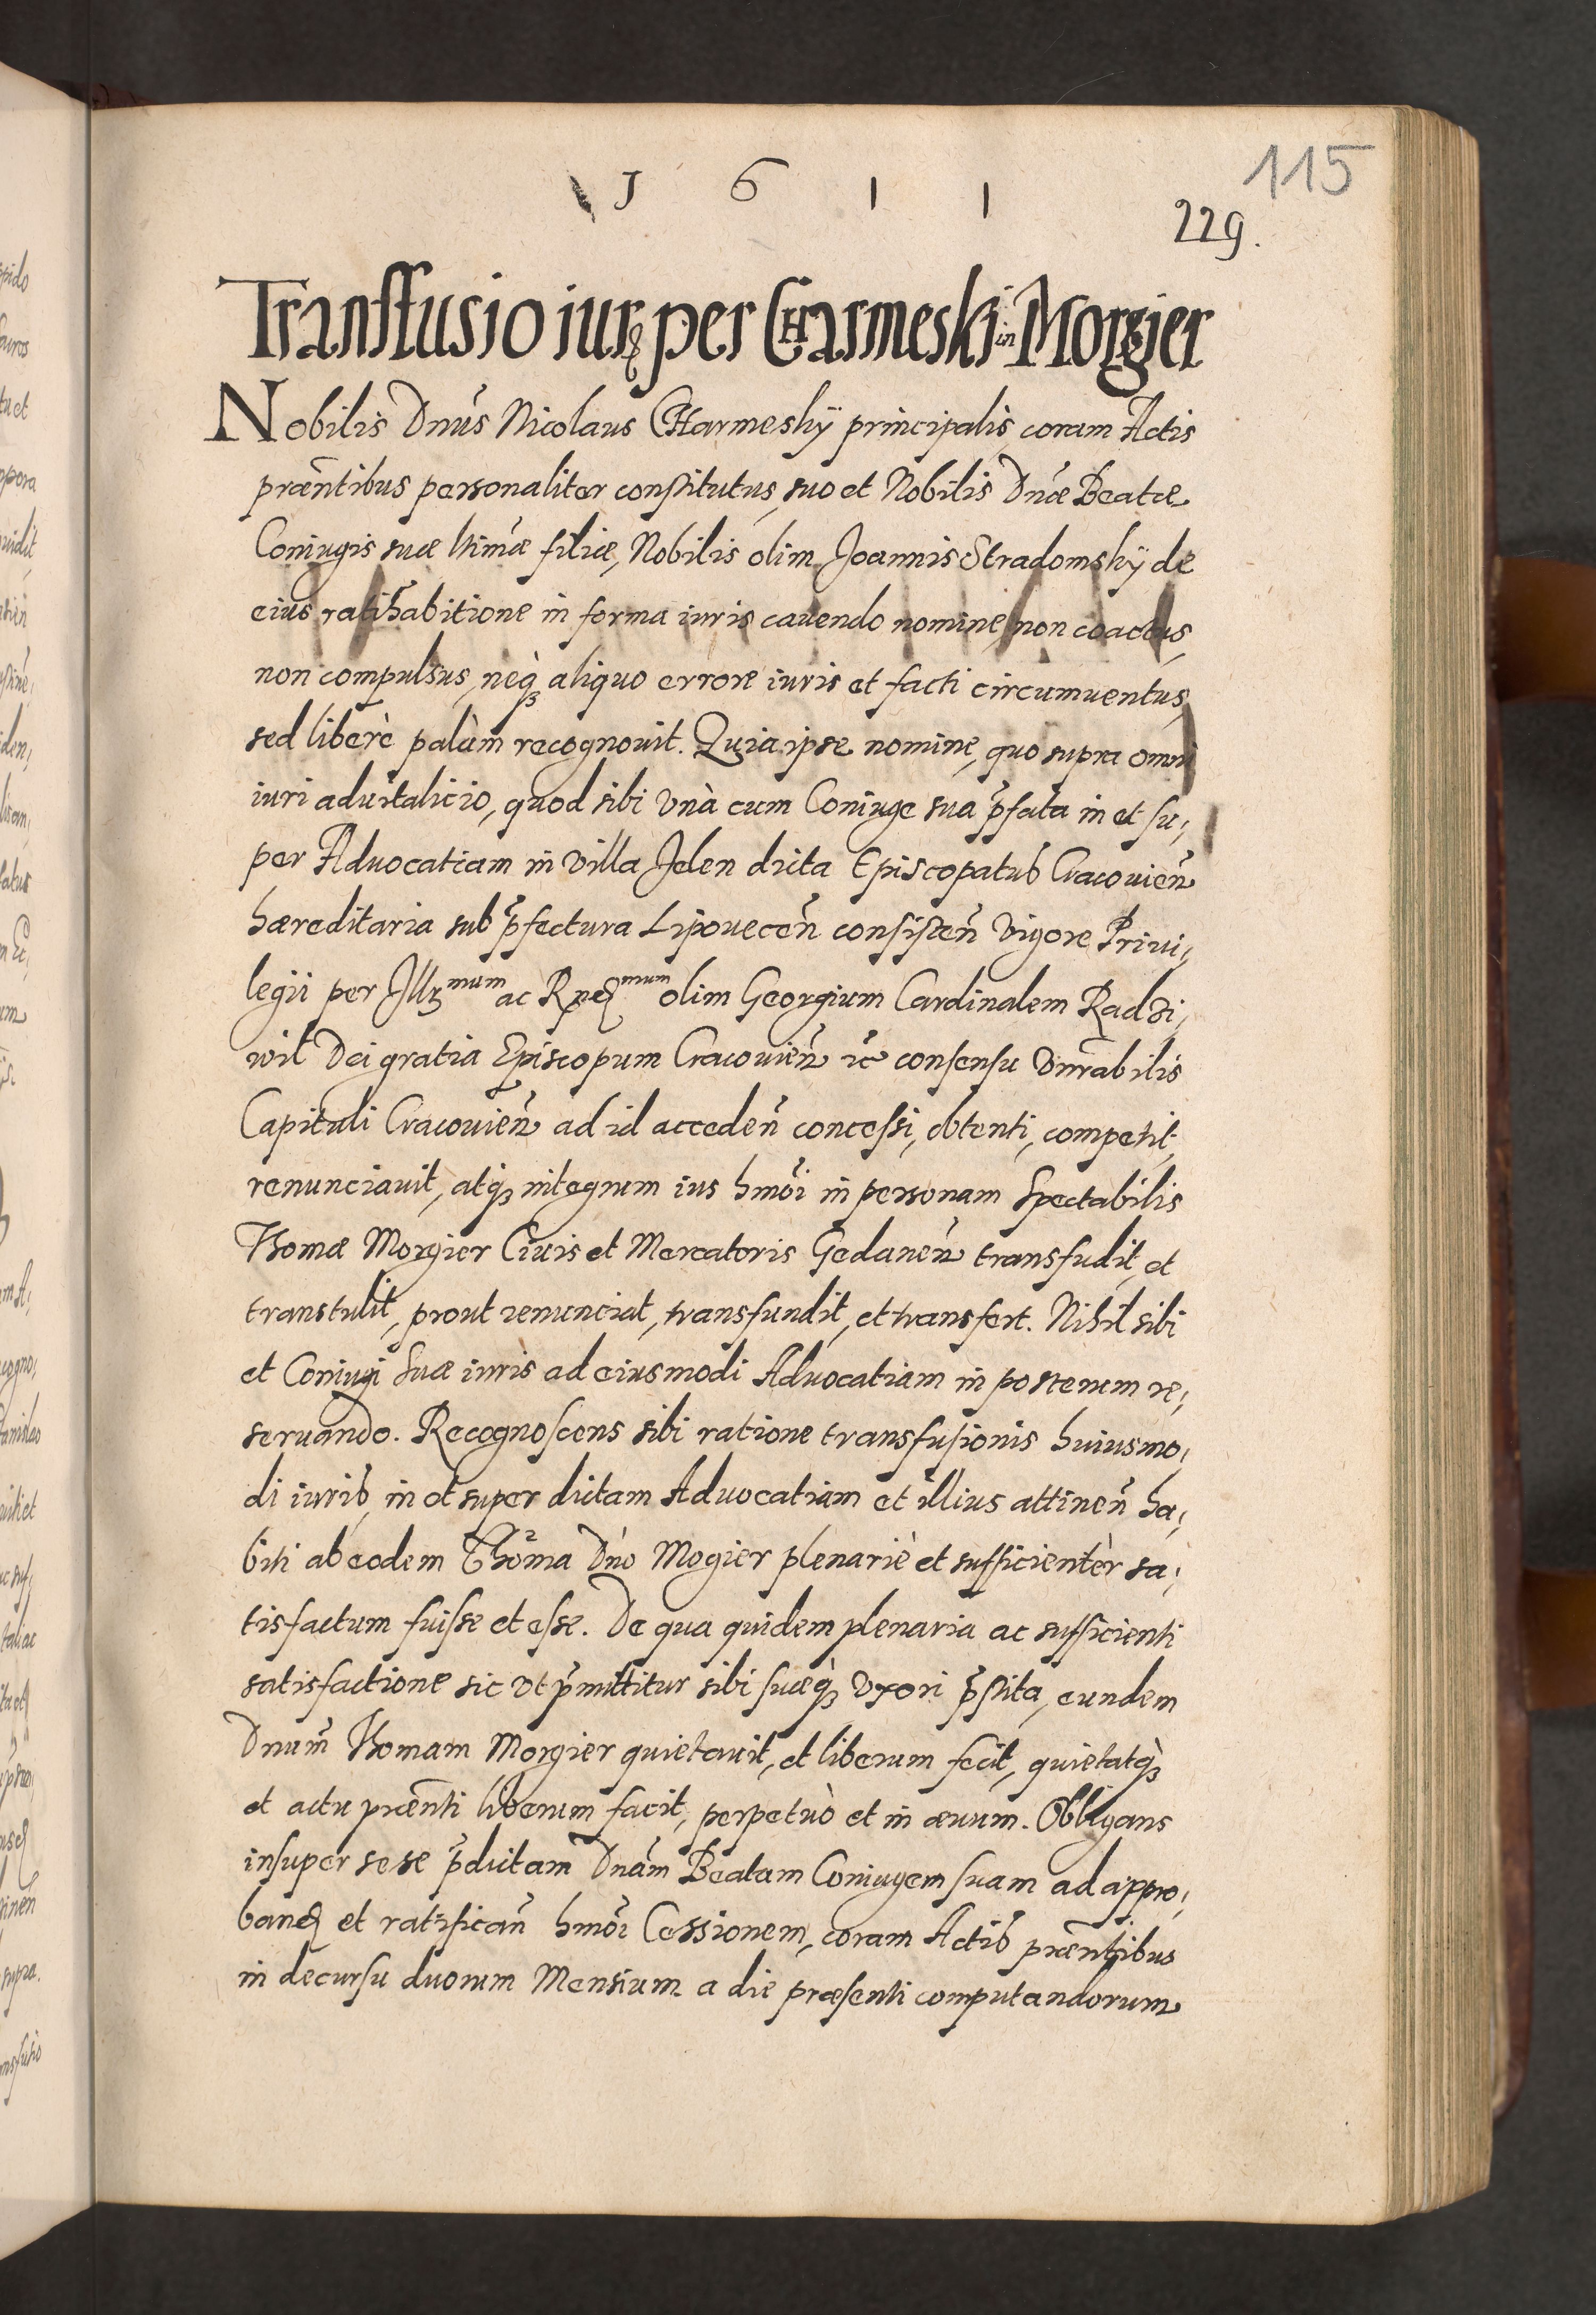 1 6 1 1
115
229.
Transfusio iurę per CHarmeski in Morgier
Nobilis Dnūs Nicolaus CHarmeskÿ principalis coram Actis
præn̄tibus personaliter constitutus, suo et Nobilis Dnæ Beatæ
Coniugis suæ ltimæ filiæ, Nobilis olim Joannis Stradomskÿ de
eius ratihabitione in forma iuris cauendo nomine, non coactus,
non compulsus, neq̀ꝫ aliquo errore iuris et facti circumuentus,
sed liberè palàm recognouit. Quia ipse nomine, quo supra omni
iuri aduitalicio, quod sibi vnà cum Coniuge sua p̄fata in et su,
per Aduocatiam in villa Jelen dicta Episcopatus Cracouien̄
hæreditaria sub p̄fectura Lipouecen̄ consisten̄ vigore Priui,
legii per Illꝫmum ac Rndmum olim Georgium Cardinalem Radzi,
wil Dei gratia Episcopum Cracouien̄ ꝛc consensu Vnrabilis
Capituli Cracouien̄ ad id acceden̄ concessi, obtenti, competit,
renunciauit, atq̀ꝫ integrum ius hmōi in personam Spectabilis
Thomæ Morgier Ciuis et Mercatoris Gedanen̄ transfudit, et
transtulit, prout renunciat, transfundit, et transfert. Nihil sibi
et Coniugi suæ iuris ad eiusmodi Aduocatiam in posterum re,
seruando. Recognoscens sibi ratione transfusionis huiusmo,
di iurib, in et super dictam Aduocatiam et illius attinen̄ ha,
biti ab eodem Thoma Dnō Mogier plenariè et sufficientèr sa,
tisfactum fuisse et esse. De qua quidem plenaria ac sufficienti
satisfactione sic vt p̄mittitur sibi suæq̀ꝫ vxori p̄stita, eundem
Dnum̄ Thomam Morgier quietauit, et liberum fecit, quietatq̀ꝫ
et actu præn̄ti liberum facit, perpetuò et in æuum. Obligans
insuper sese p̄dictam Dnām Beatam Coniugem suam ad appro,
band et ratifican̄ hmōi Cessionem, coram Actib præn̄tibus
in decursu duorum Mensium a die præsenti computandorum